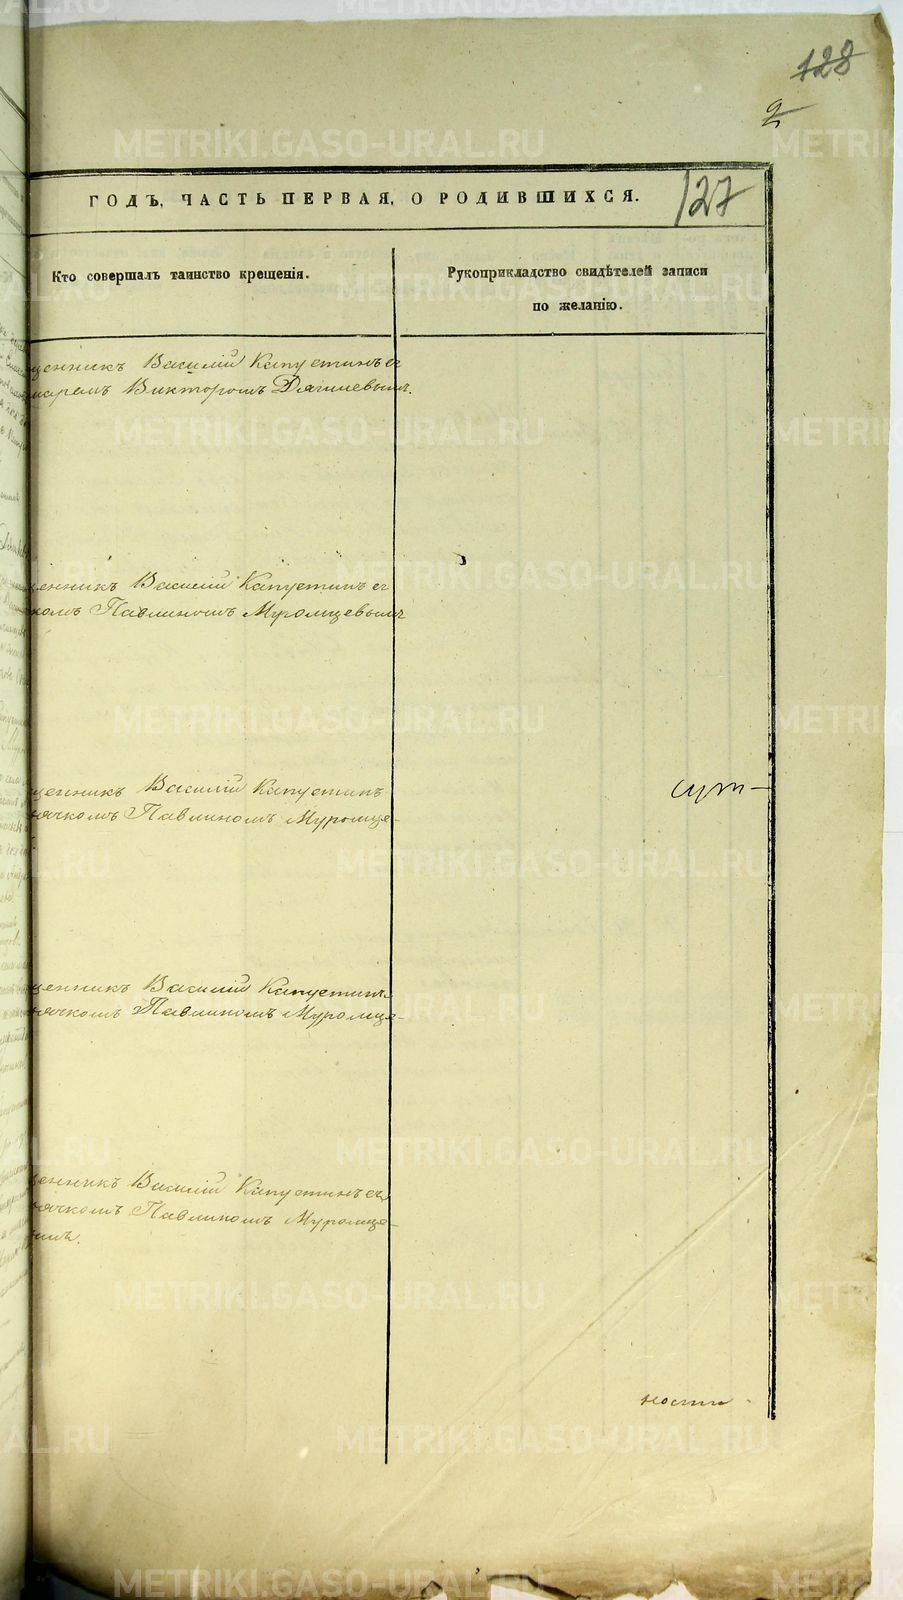 128
2
ГОДЪ, ЧАСТЬ ПЕРВАЯ, О РОДИВШИХСЯ.
127
Кто совершалъ таинство крещенія.
Рукоприкладство свидѣтелей записи
по желанію.
щенникъ Василій Капустинъ съ
маремъ Викторомъ
щенникъ Василій Капустинъ съ
комъ Павлиномъ Муромцевымъ
щенникъ Василій Капустинъ
ячкомъ Павлиномъ Муромце-
сут-
щенникъ Василій Капустинъ
ячкомъ Павлиномъ Муромце-
щенникъ Василій Капустинъ съ
ячкомъ Павлиномъ Муромце-
ымъ.
ности
METRIKI.GASO-URAL.RU